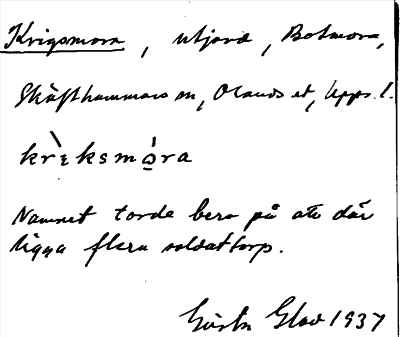 Krigsmora, utjord, Botmora,
Skäfthammars sn, Olands hd, Upps. l.
krìksmɷ́ra
Namnet torde bero på att där
ligga flera soldattorp.
Gösta Glad 1937